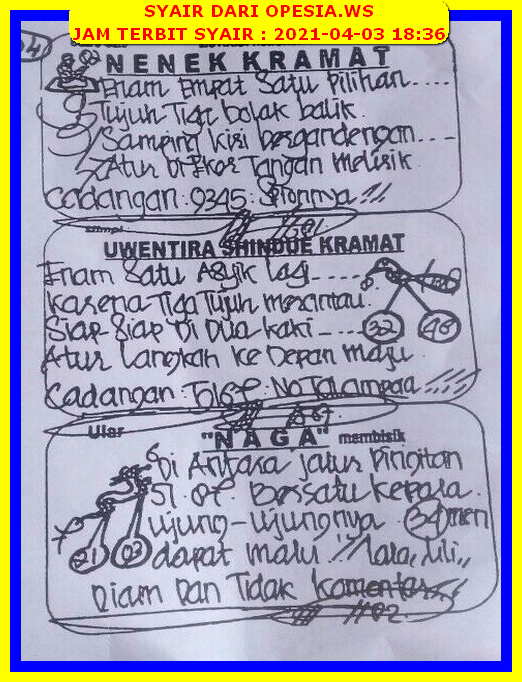 SYAIR DARI OPESIA.WS
JAM TERBIT SYAIR : 2021-04-03 18:36
NENEK KRAMAT
Enam Empat Satu Pilihan....
Tujuh Tiga bolak balik.
Samping kiri bergandengan....
Atur Di Ekor Tangan Melirik.
Cadangan: 9345:
UWENTIRA SHINDUE KRAMAT
Enam Satu Asyik lagi.....
Karena Tiga Tujuh merantau.
Siap-Siap Di Dua kaki-....
32 48
Atur langkah ke Depan maju.
Cadangan:
Ular
"NAGA" membisik
Di Antara jalur Pingitan
Bersatu kepala.
ujung-ujungnya 34
21 03 dapat malu!!
Diam Dan Tidak Komentar